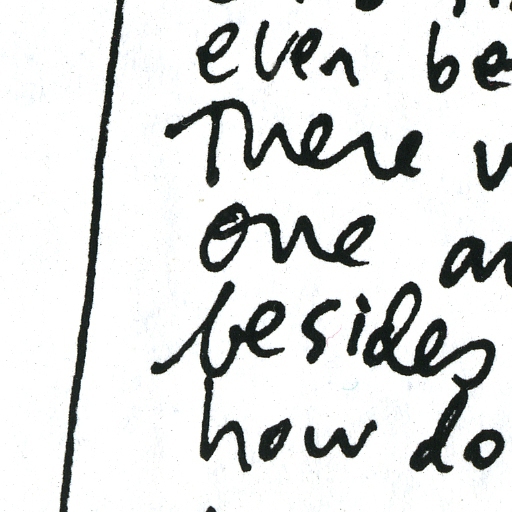 even be
There w
one an
besides
how do